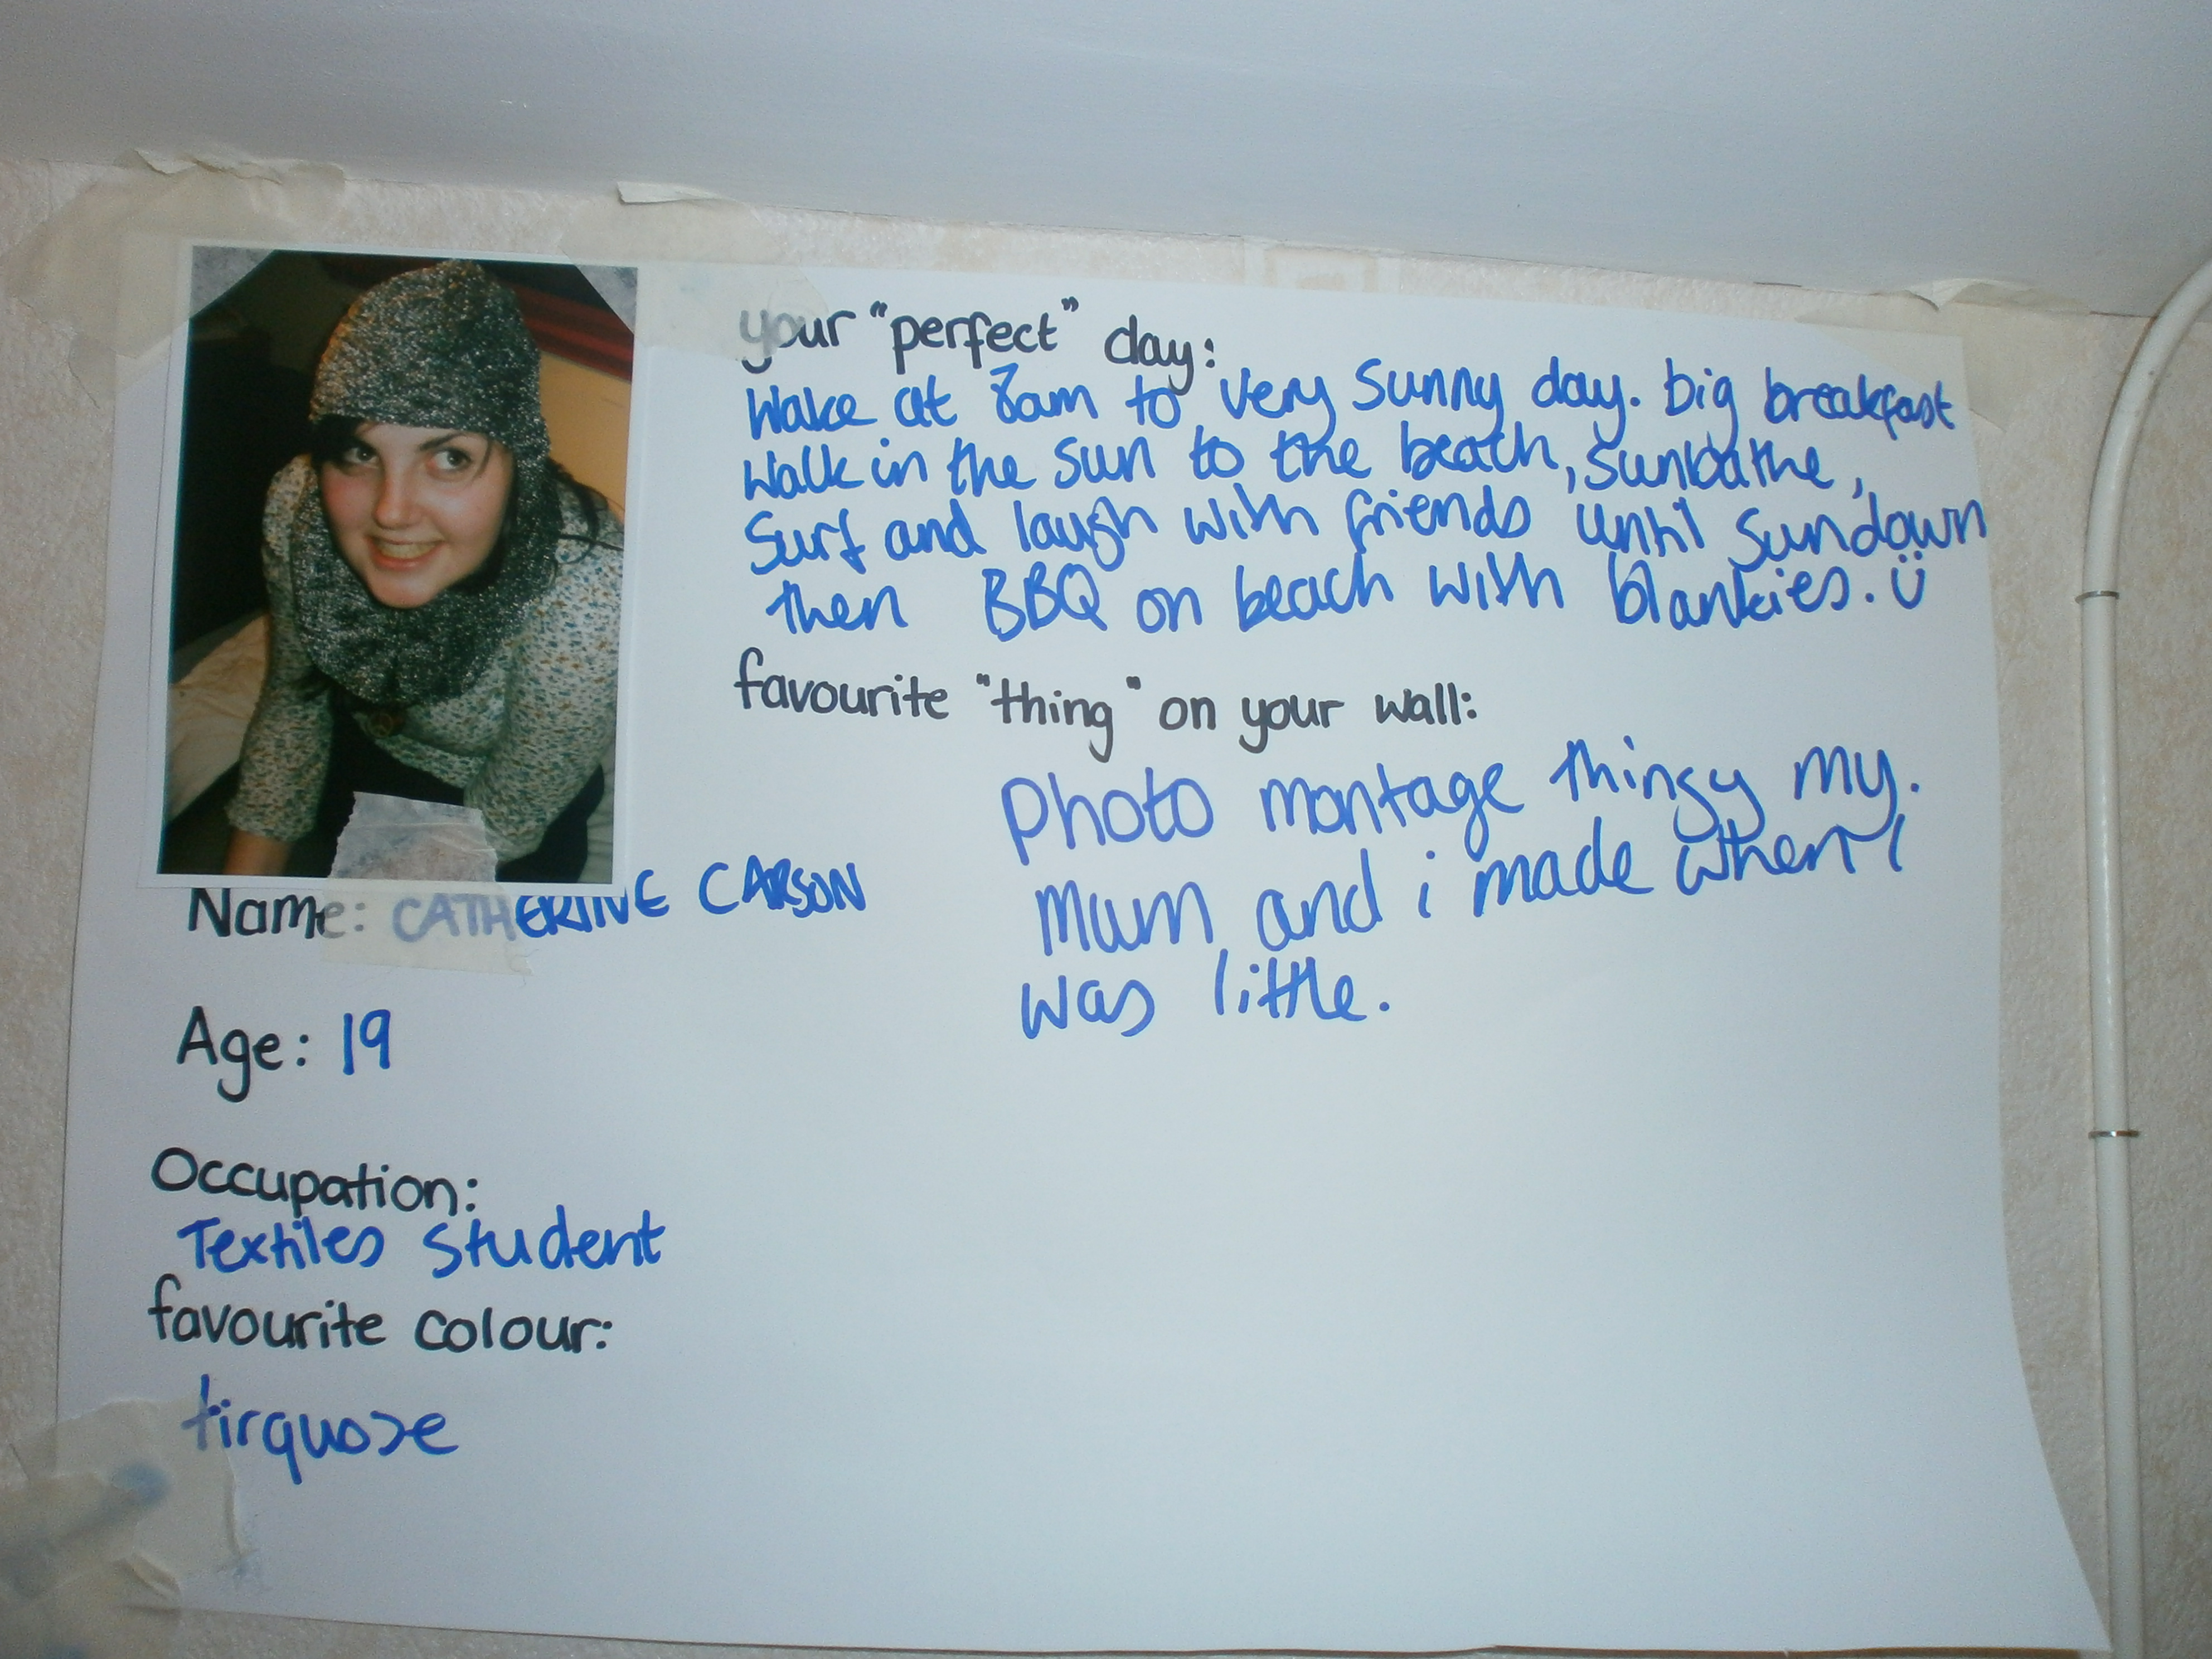 your "perfect" day:
Wake at 8am to very sunny day. big breakfast
Walk in the sun to the beach, sunbathe,
Surf and laugh with friends until sundown
then BBQ on beach with blankies. Ü
favourite "thing" on your wall:
Photo montage thingy my.
Mum and i made when i
was little.
Name: CATHERINE CARSON
Age: 19
Occupation:
Textiles Student
favourite colour:
tirquose